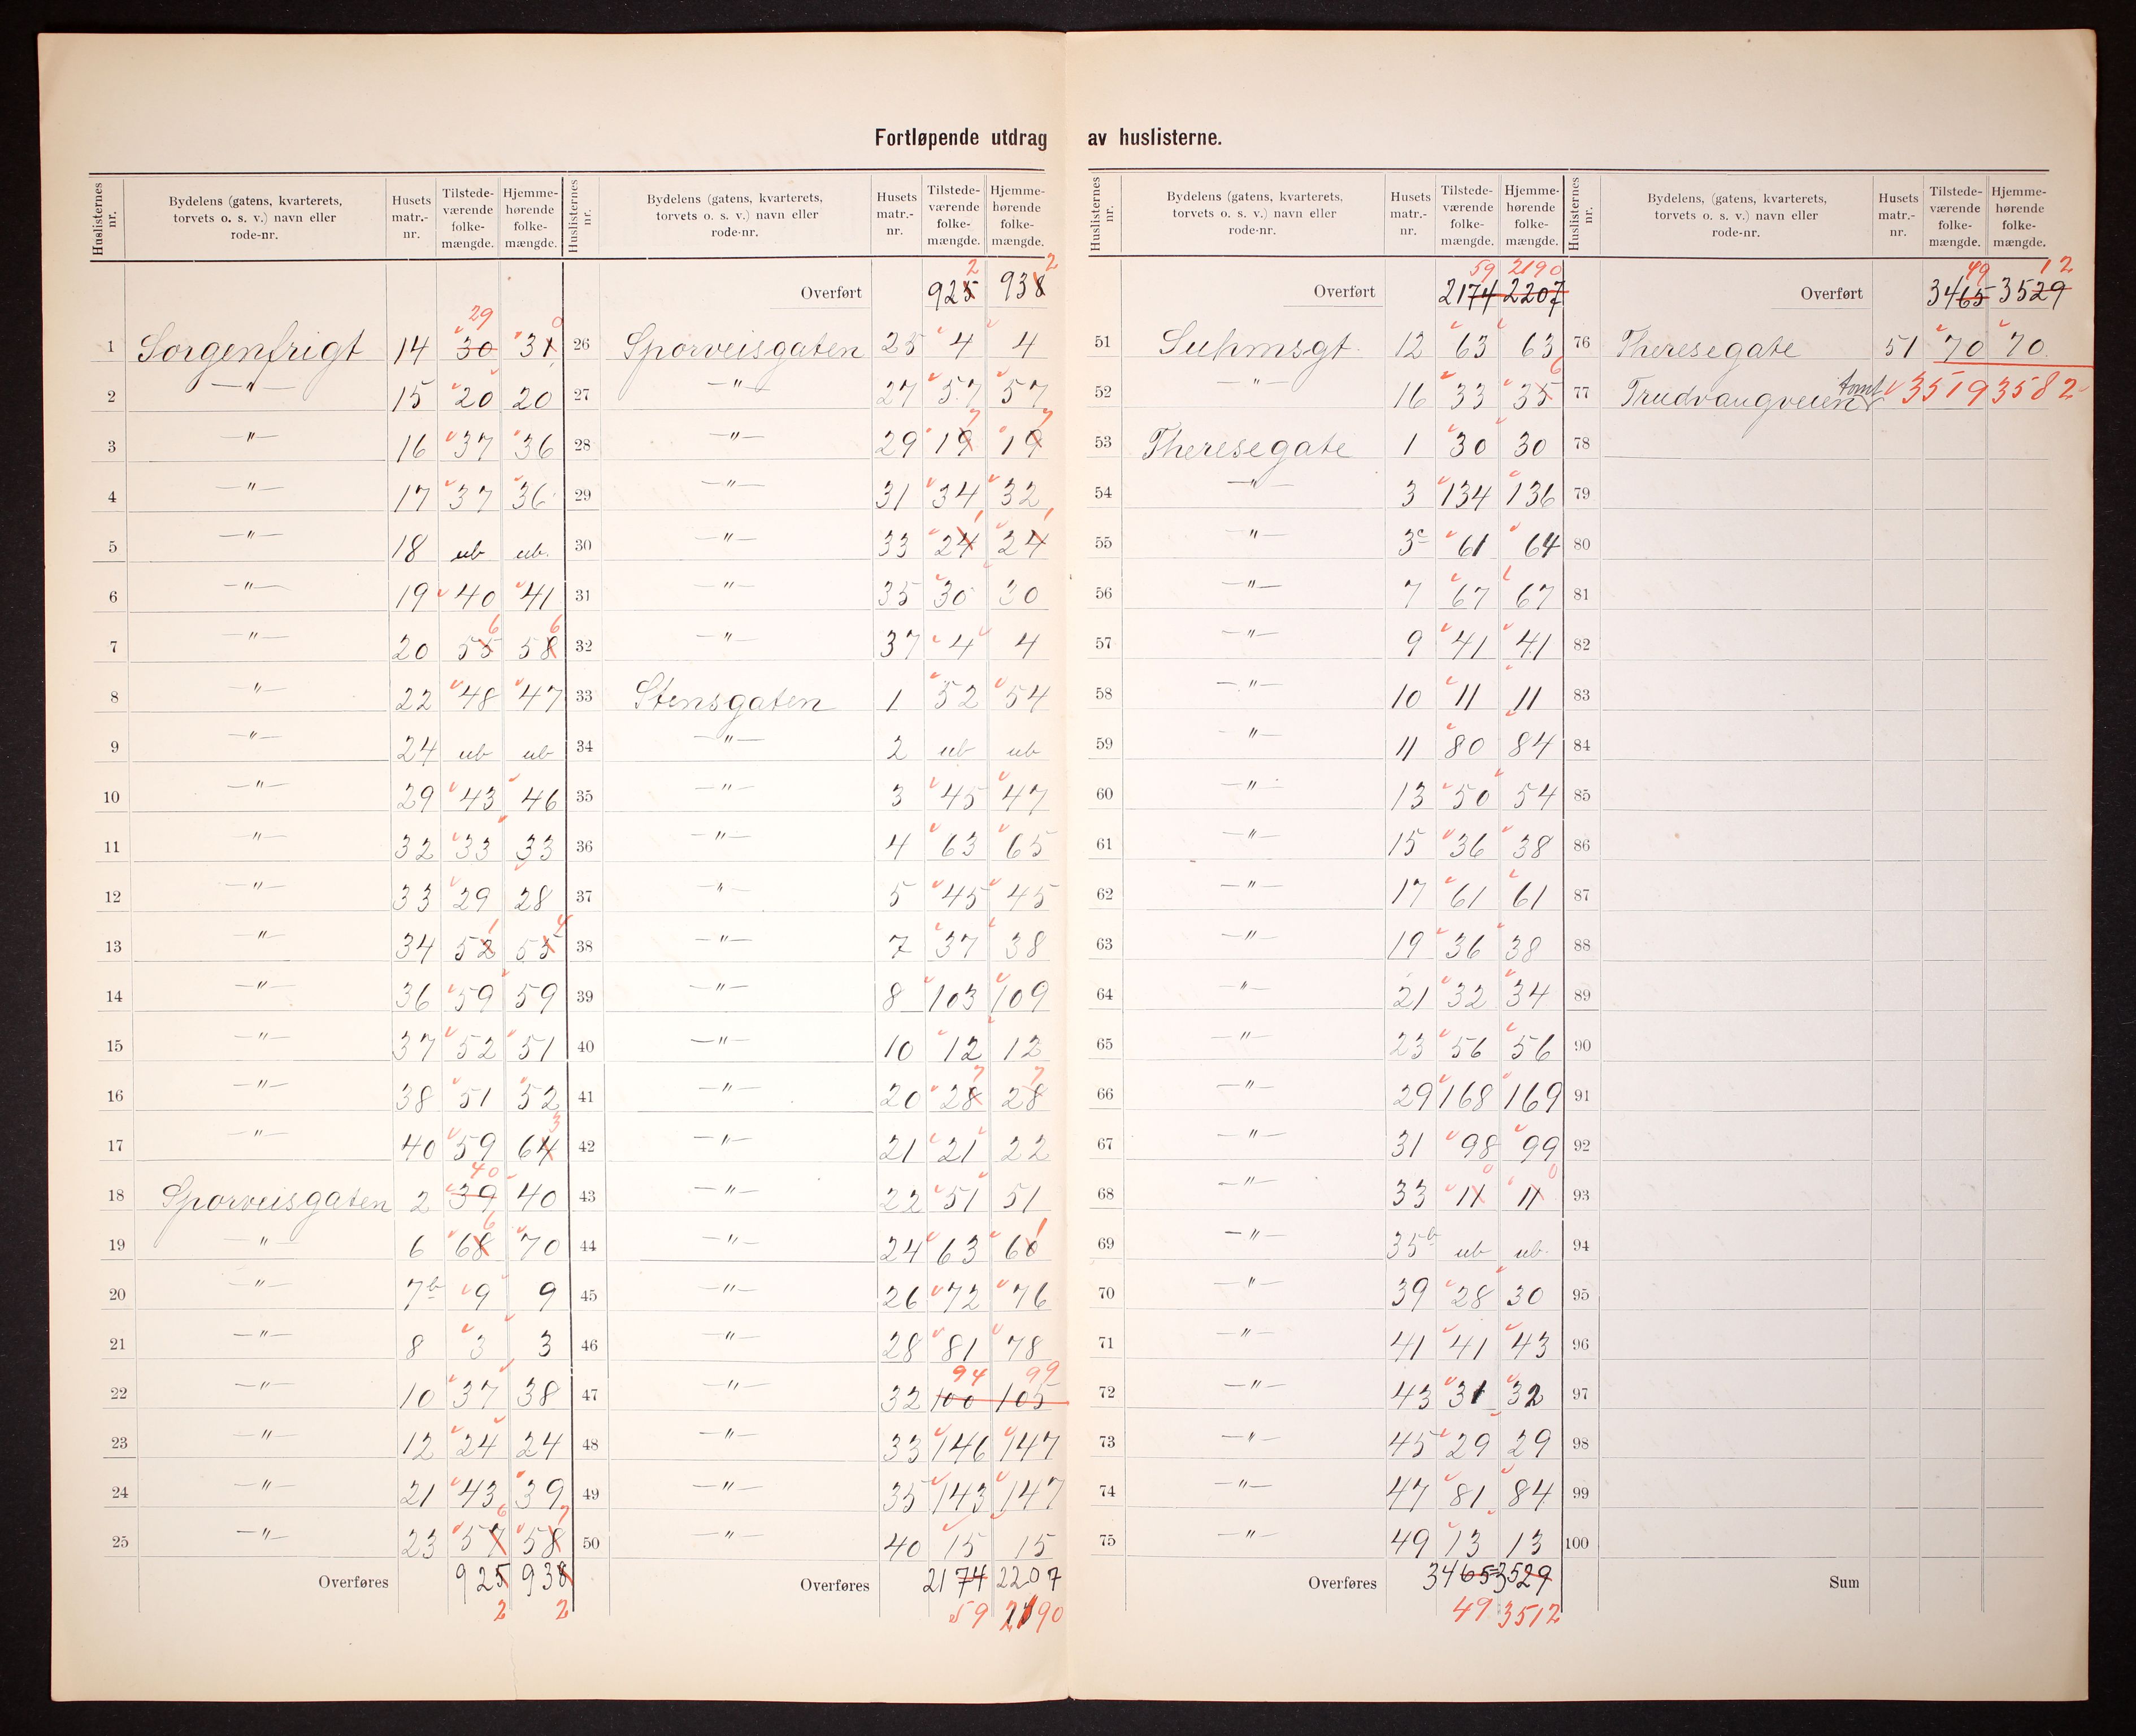 Fortløpende utdrag av huslisterne.
Huslisternes nr. | Bydelens (gatens, kvarterets, torvets o. s. v.) navn eller rode-nr. | Husets matr.-nr. | Tilstede-værende folke-mængde. | Hjemme-hørende folke-mængde.
1 Sorgenfrigt 14 30 29 31 0
2 —"— 15 20 20
3 —"— 16 37 36
4 —"— 17 37 36
5 —"— 18 ub ub.
6 —"— 19 40 41
7 —"— 20 55 6 58 6
8 —"— 22 48 47
9 —"— 24 ub ub
10 —"— 29 43 46
11 —"— 32 33 33
12 —"— 33 29 28
13 —"— 34 52 1 55 4
14 —"— 36 59 59
15 —"— 37 52 51
16 —"— 38 51 52
17 —"— 40 59 64 3
18 Sporveisgaten 2 39 40 40
19 —"— 6 68 6 70
20 —"— 7b 9 9
21 —"— 8 3 3
22 —"— 10 37 38
23 —"— 12 24 24
24 —"— 21 43 39
25 —"— 23 57 6 58 7
Overføres 925 938
2 2
Huslisternes nr. | Bydelens (gatens, kvarterets, torvets o. s. v.) navn eller rode-nr. | Husets matr.-nr. | Tilstede-værende folke-mængde. | Hjemme-hørende folke-mængde.
Overført 925 2 938 2
26 Sporveisgaten 25 4 4
27 —"— 27 57 57
28 —"— 29 19 7 19 7
29 —"— 31 34 32
30 —"— 33 24 1 24 1
31 —"— 35 30 30
32 —"— 37 4 4
33 Stensgaten 1 52 54
34 —"— 2 ub ub
35 —"— 3 45 47
36 —"— 4 63 65
37 —"— 5 45 45
38 —"— 7 37 38
39 —"— 8 103 109
40 —"— 10 12 12
41 —"— 20 28 7 28 7
42 —"— 21 21 22
43 —"— 22 51 51
44 —"— 24 63 60 1
45 —"— 26 72 76
46 —"— 28 81 78
47 —"— 32 100 94 105 99
48 —"— 33 146 147
49 —"— 35 143 147
50 —"— 40 15 15
Overføres 2174 2207
59 2190
Huslisternes nr. | Bydelens (gatens, kvarterets, torvets o. s. v.) navn eller rode-nr. | Husets matr.-nr. | Tilstede-værende folke-mængde. | Hjemme-hørende folke-mængde.
59 2190
Overført 2174 2207
51 Suhmsgt. 12 63 63
52 —"— 16 33 35 6
53 Theresegate 1 30 30
54 —"— 3 134 136
55 —"— 3c 61 64
56 —"— 7 67 67
57 —"— 9 41 41
58 —"— 10 11 11
59 —"— 11 80 84
60 —"— 13 50 54
61 —"— 15 36 38
62 —"— 17 61 61
63 —"— 19 36 38
64 —"— 21 32 34
65 —"— 23 56 56
66 —"— 29 168 169
67 —"— 31 98 99
68 —"— 33 11 0 11 0
69 —"— 35b ub ub.
70 —"— 39 28 30
71 —"— 41 41 43
72 —"— 43 31 32
73 —"— 45 29 29
74 —"— 47 81 84
75 —"— 49 13 13
Overføres 3465 3529
49 3512
Huslisternes nr. | Bydelens, (gatens, kvarterets, torvets o. s. v.) navn eller rode-nr. | Husets matr.-nr. | Tilstede-værende folke-mængde. | Hjemme-hørende folke-mængde.
49 12
Overført 3465 3529
76 Theresegate 51 70 70
77 Trudvangveien tomt 3519 3582
78
79
80
81
82
83
84
85
86
87
88
89
90
91
92
93
94
95
96
97
98
99
100
Sum